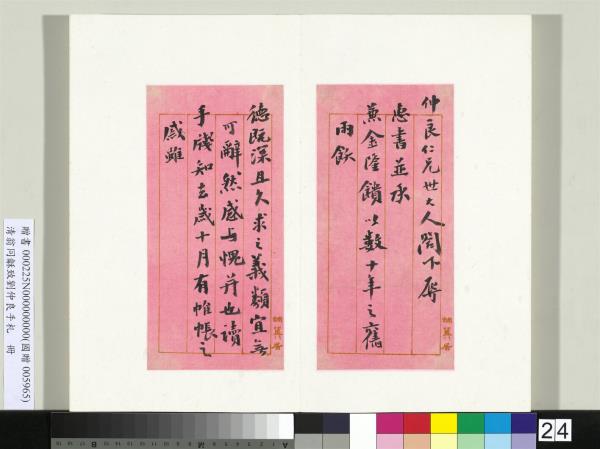 仲良仁兄世大人閣下辱
惠書並承
兼金隆饋以數十年之舊
雨飲
德既深且久求之義類宜無
可辭然感与愧并也讀
手牋知去歲十月有帷帳之
感雖
贈書 000225N000000000(國贈 005965)
清翁同龢致劉仲良手札 冊
24